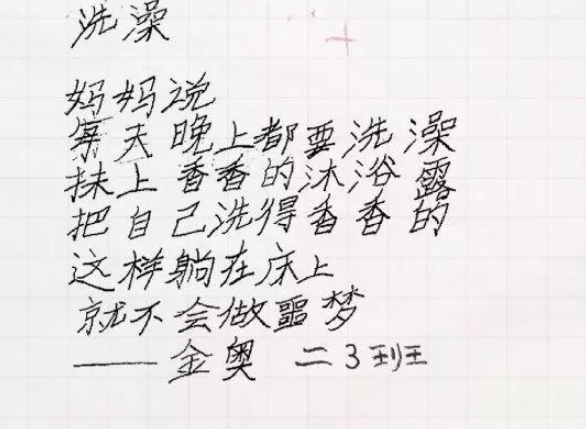 洗澡
妈妈说
每天晚上都要洗澡
抹上香香的沐浴露
把自己洗得香香的
这样躺在床上
就不会做噩梦
——金奥 二3班